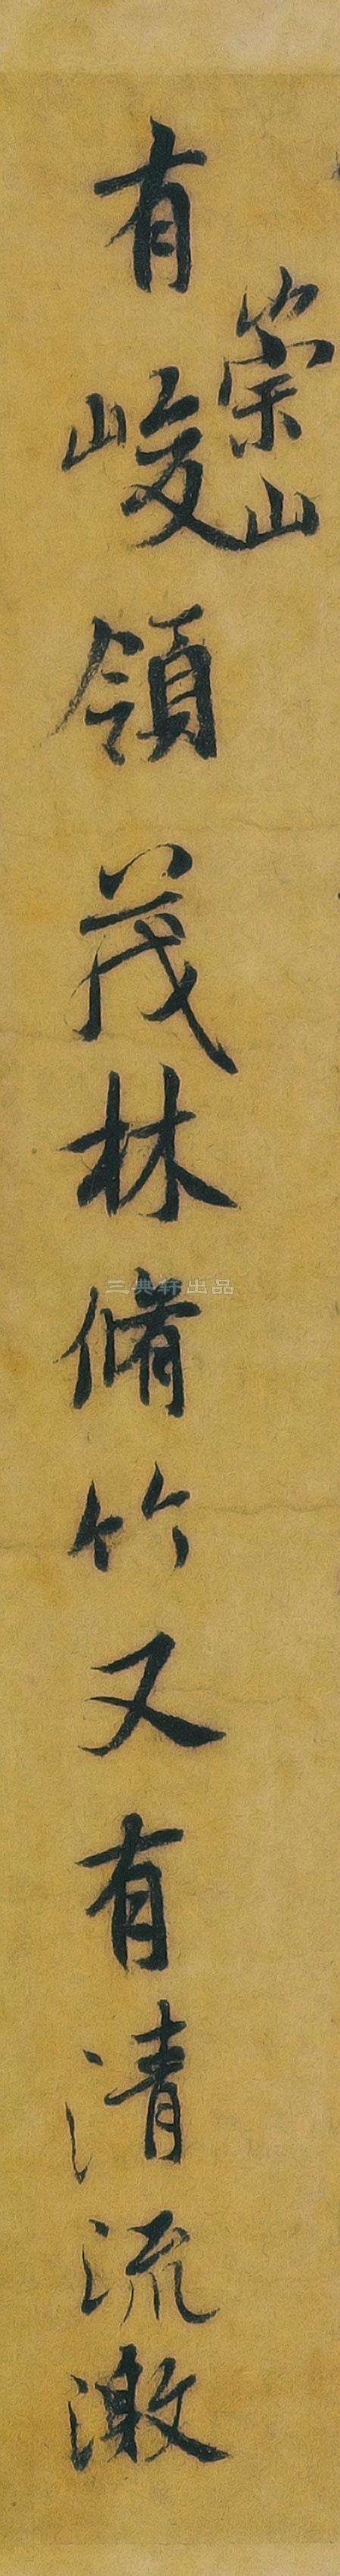 有峻領茂林脩竹又有清流激
崇山
三典轩出品